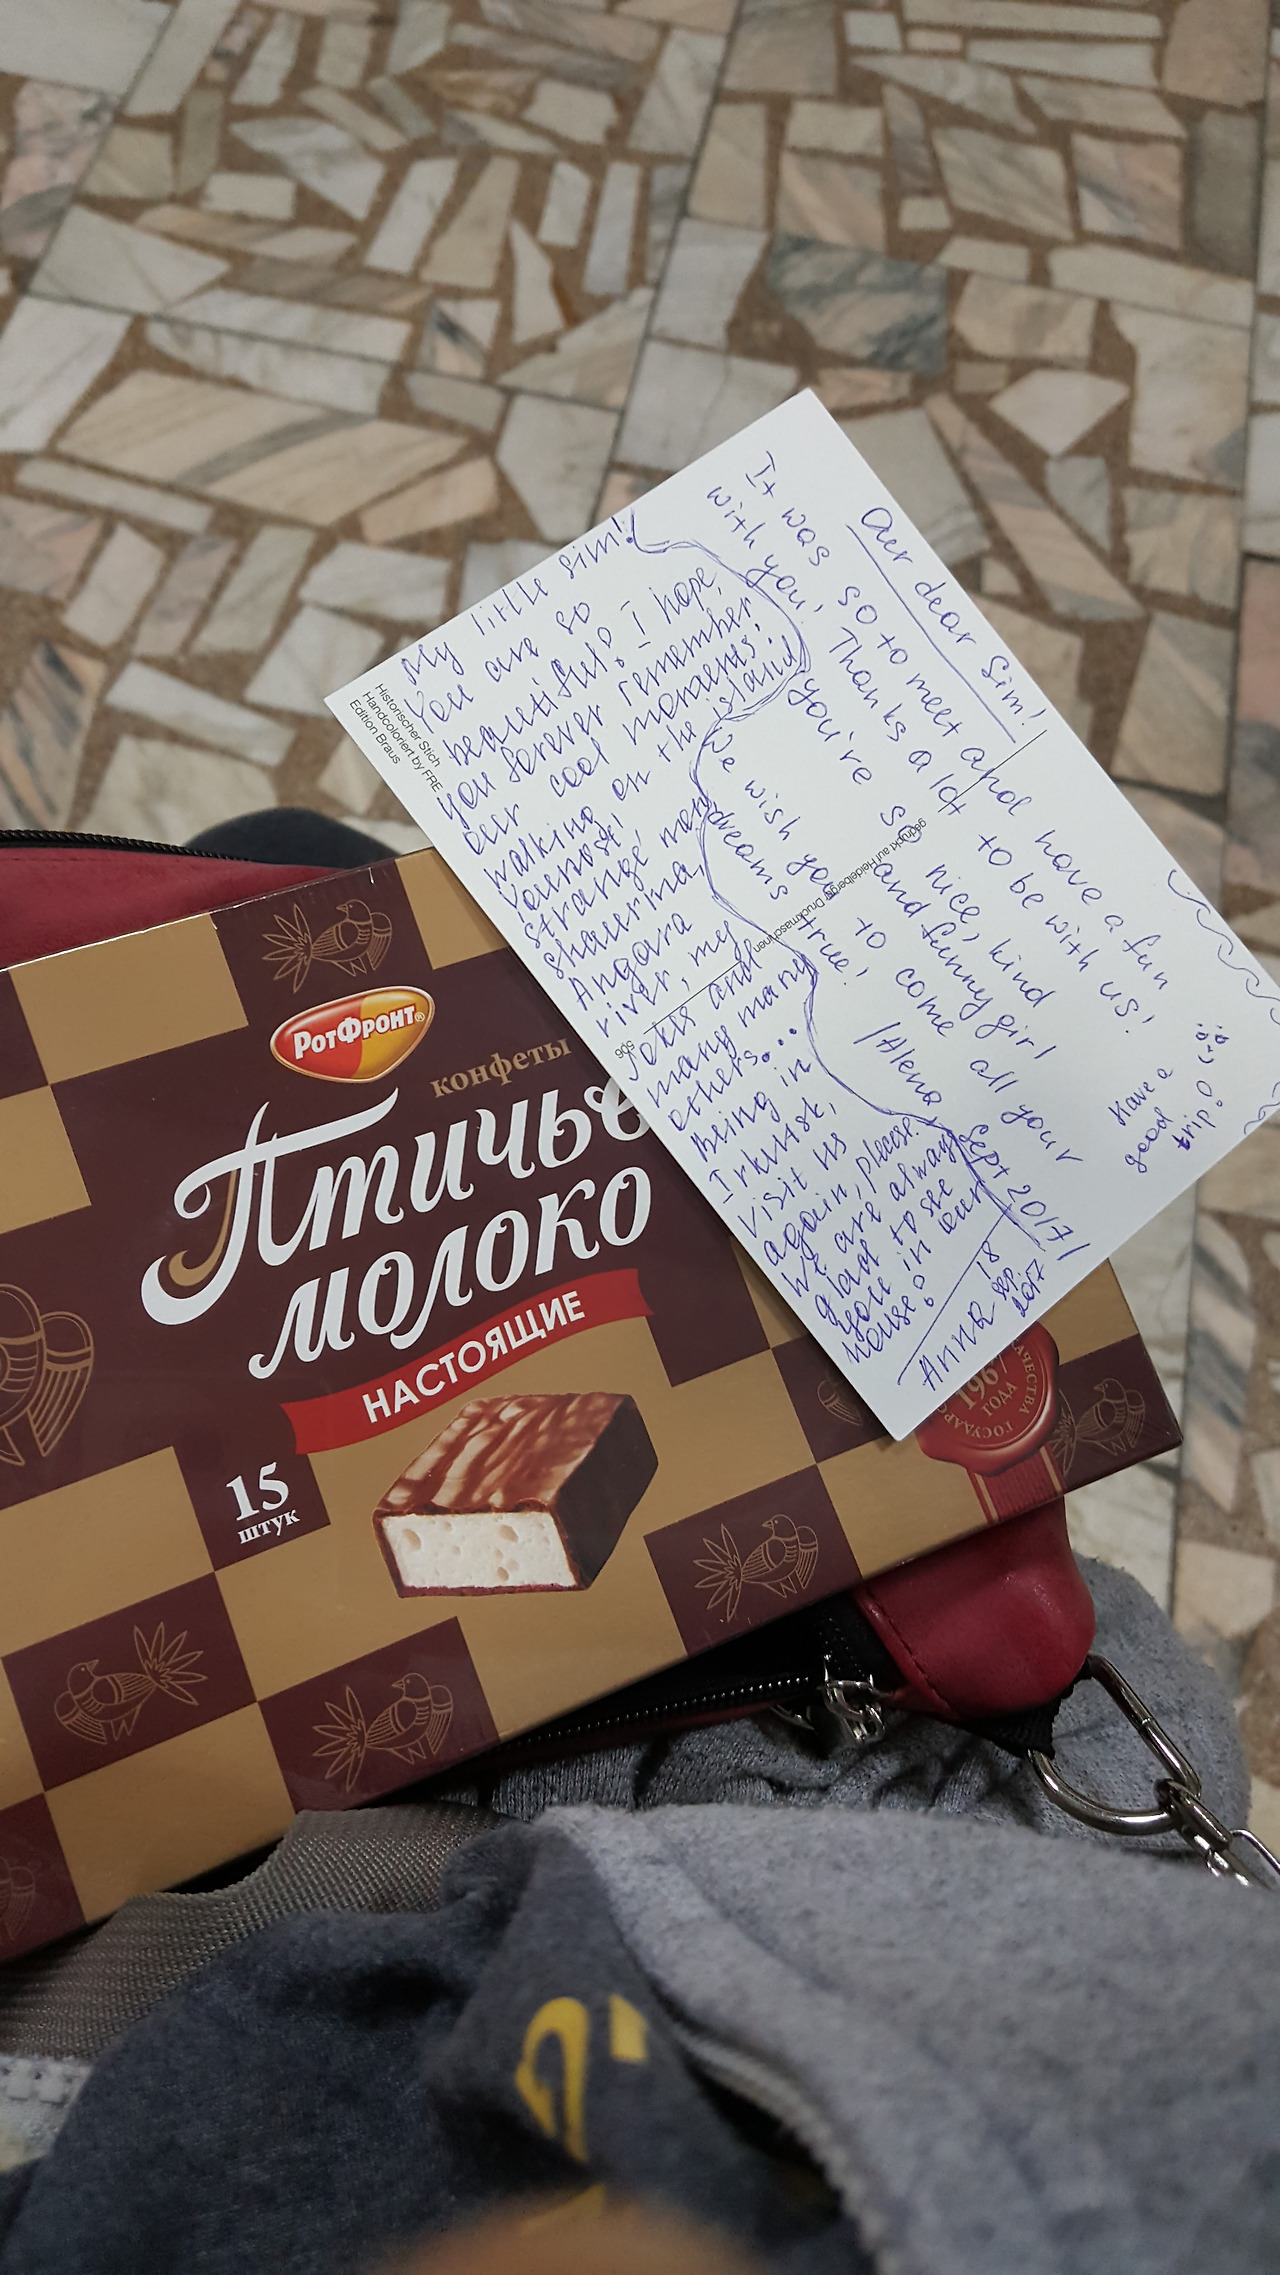 Our dear Sim!
It was so to meet and have a fun
with you! Thanks a lot to be with us!
You're so nice, kind
and funny girl
We wish you to come all your
dreams true!
/Alena, Sept 2017/
Have a
good
trip!
My little Sim!
You are so
beautiful! I hope
you forever remember
our cool moments:
walking on the island
strange men
shaurma,
Angara
river, my
jokes and
many many
others...
Being in
Irkutsk,
visit us
again, please.
We are always
glad to see
you in our
house!
Anna 18
sep.
2017
Historischer Stich
Handcoloriert by FRE
Edition Braus
gedruckt auf Heidelberger Druckmaschinen
506
РотФронт®
конфеты
Птичье
молоко
НАСТОЯЩИЕ
15
штук
1967
ГОДА